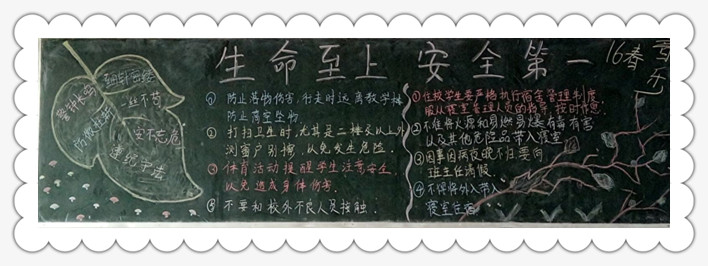 生命至上 安全第一
16春
警钟长鸣
一丝不苟
防微杜渐
安不忘危
遵纪守法
① 防止落物伤害,行走时远离教学楼
防止高空坠物
② 打扫卫生时,尤其是二楼及以上外
测窗户别擦,以免发生危险.
③ 体育活动提醒学生注意安全
以免造成身体伤害.
④ 不要和校外不良人员接触.
①住校学生要严格执行宿舍管理制度
服从寝室管理人员的指导,按时作息.
②不准带火源和易燃易爆有毒有害
以及其他危险品带入寝室
③因事因病夜晚不归要向
班主任请假.
④不得将外人带入
寝室住宿